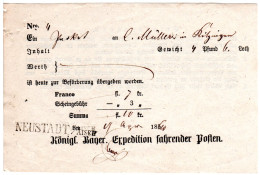 Nro. 4
Ein Packet an C. Müller in Kitzingen
Inhalt Gewicht 4 Pfund 6 Loth
Werth
ist heute zur Beförderung übergeben worden.
Franco fl. 7 kr.
Scheingebühr „ — 3 „
Summa fl. 10 kr.
NEUSTADT A/AISCH den 9 1864
Königl. Bayer. Expedition fahrender Posten.